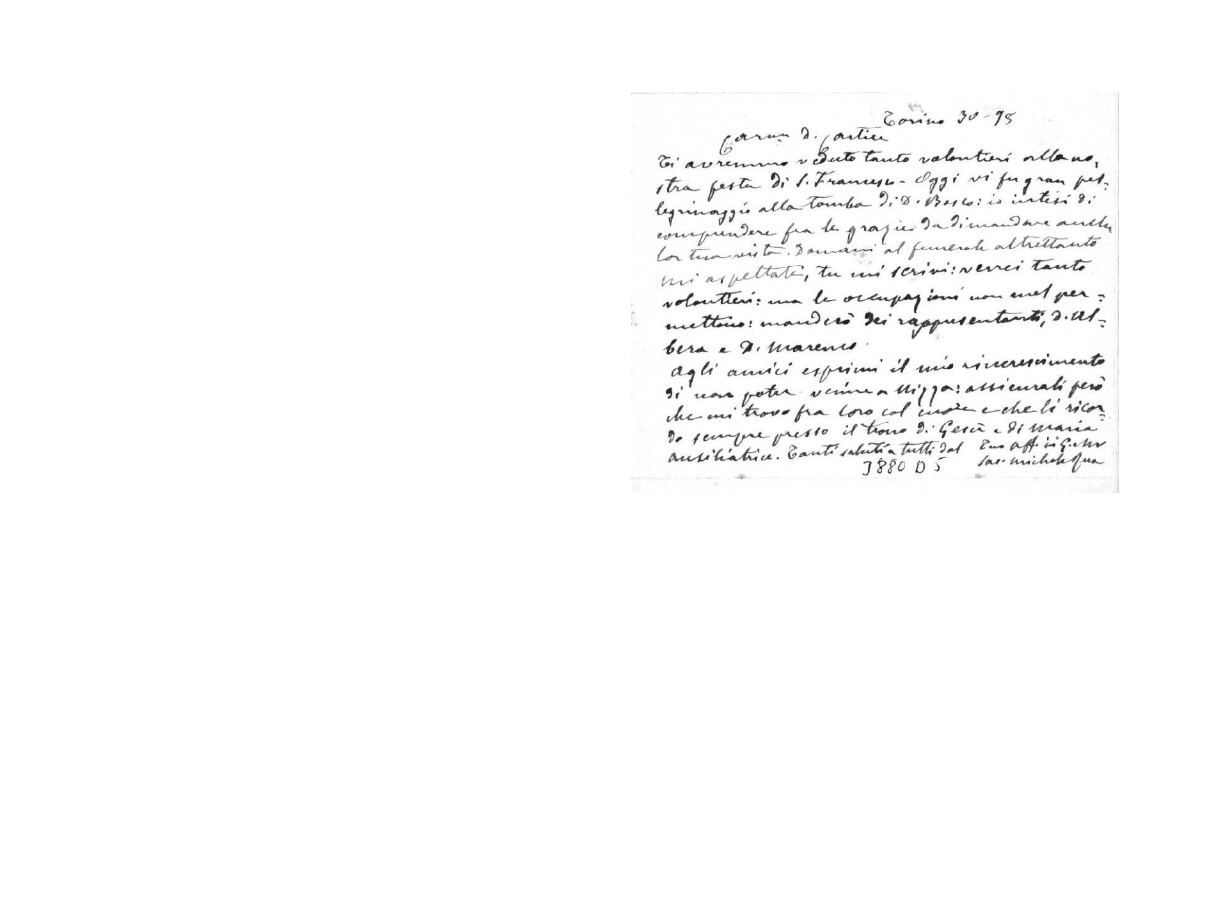 Torino 30-95
Carmo D. Cartier
Ti avremmo veduto tanto volontieri alla no-
stra festa di S. Francesco - Oggi vi fu gran pel-
legrinaggio alla tomba di D. Bosco: io intesi di
comprendere fra le grazie da dimandare anche
la tua visita. Domani al funerale altrettanto
mi aspettate, tu mi scrivi: verrei tanto
volontieri: ma le occupazioni non mel per-
mettono: manderò dei rappresentanti, D. Al-
bera e D. Marenco
Agli amici esprimi il mio rincrescimento
di non poter venire a Nizza: assicurali però
che mi trovo fra loro col cuore e che li ricor-
do sempre presso il trono di Gesù e di Maria
Ausiliatrice. Tanti saluti a tutti dal Tuo aff. in G. e M
Sac. Michele Rua
3880 D 5